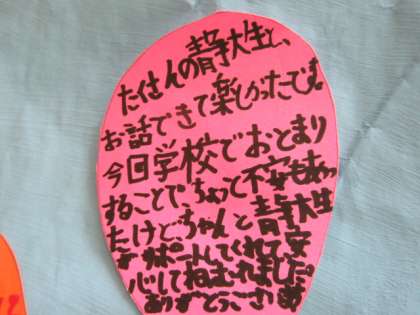 たくさんの静大生と、
お話できて楽しかったです。
今日学校でおとまり
することで、ちょっと不安もあっ
たけど、ちゃんと静大生
がサポートしてくれて安
心してねむれました。
ありがとうござ